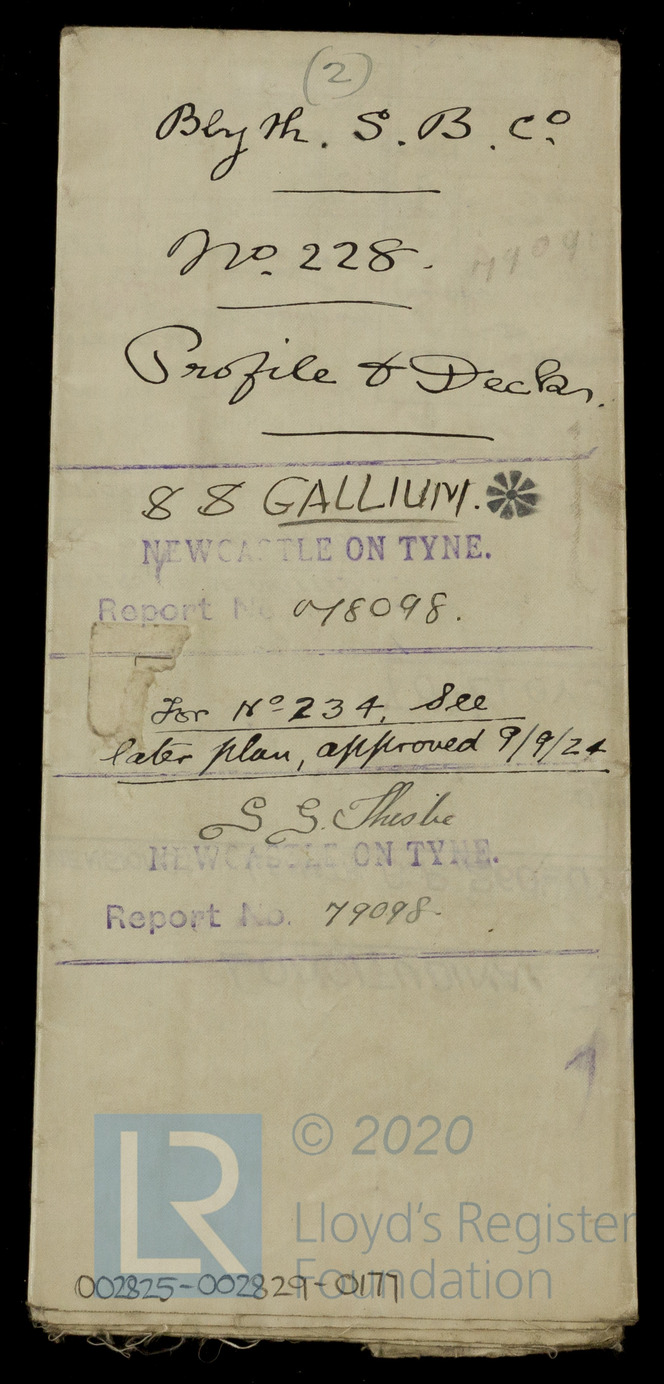 (2)
Blyth. S. B. Co.
No. 228.
79098
Profile & Decks.
SS GALLIUM.
NEWCASTLE ON TYNE.
Report No 78098.
For No 234, See
later plan, approved 9/9/24
S S. Thisbe
NEWCASTLE ON TYNE.
Report No. 79098.
LR
© 2020
Lloyd's Register
Foundation
002825-002829-0177